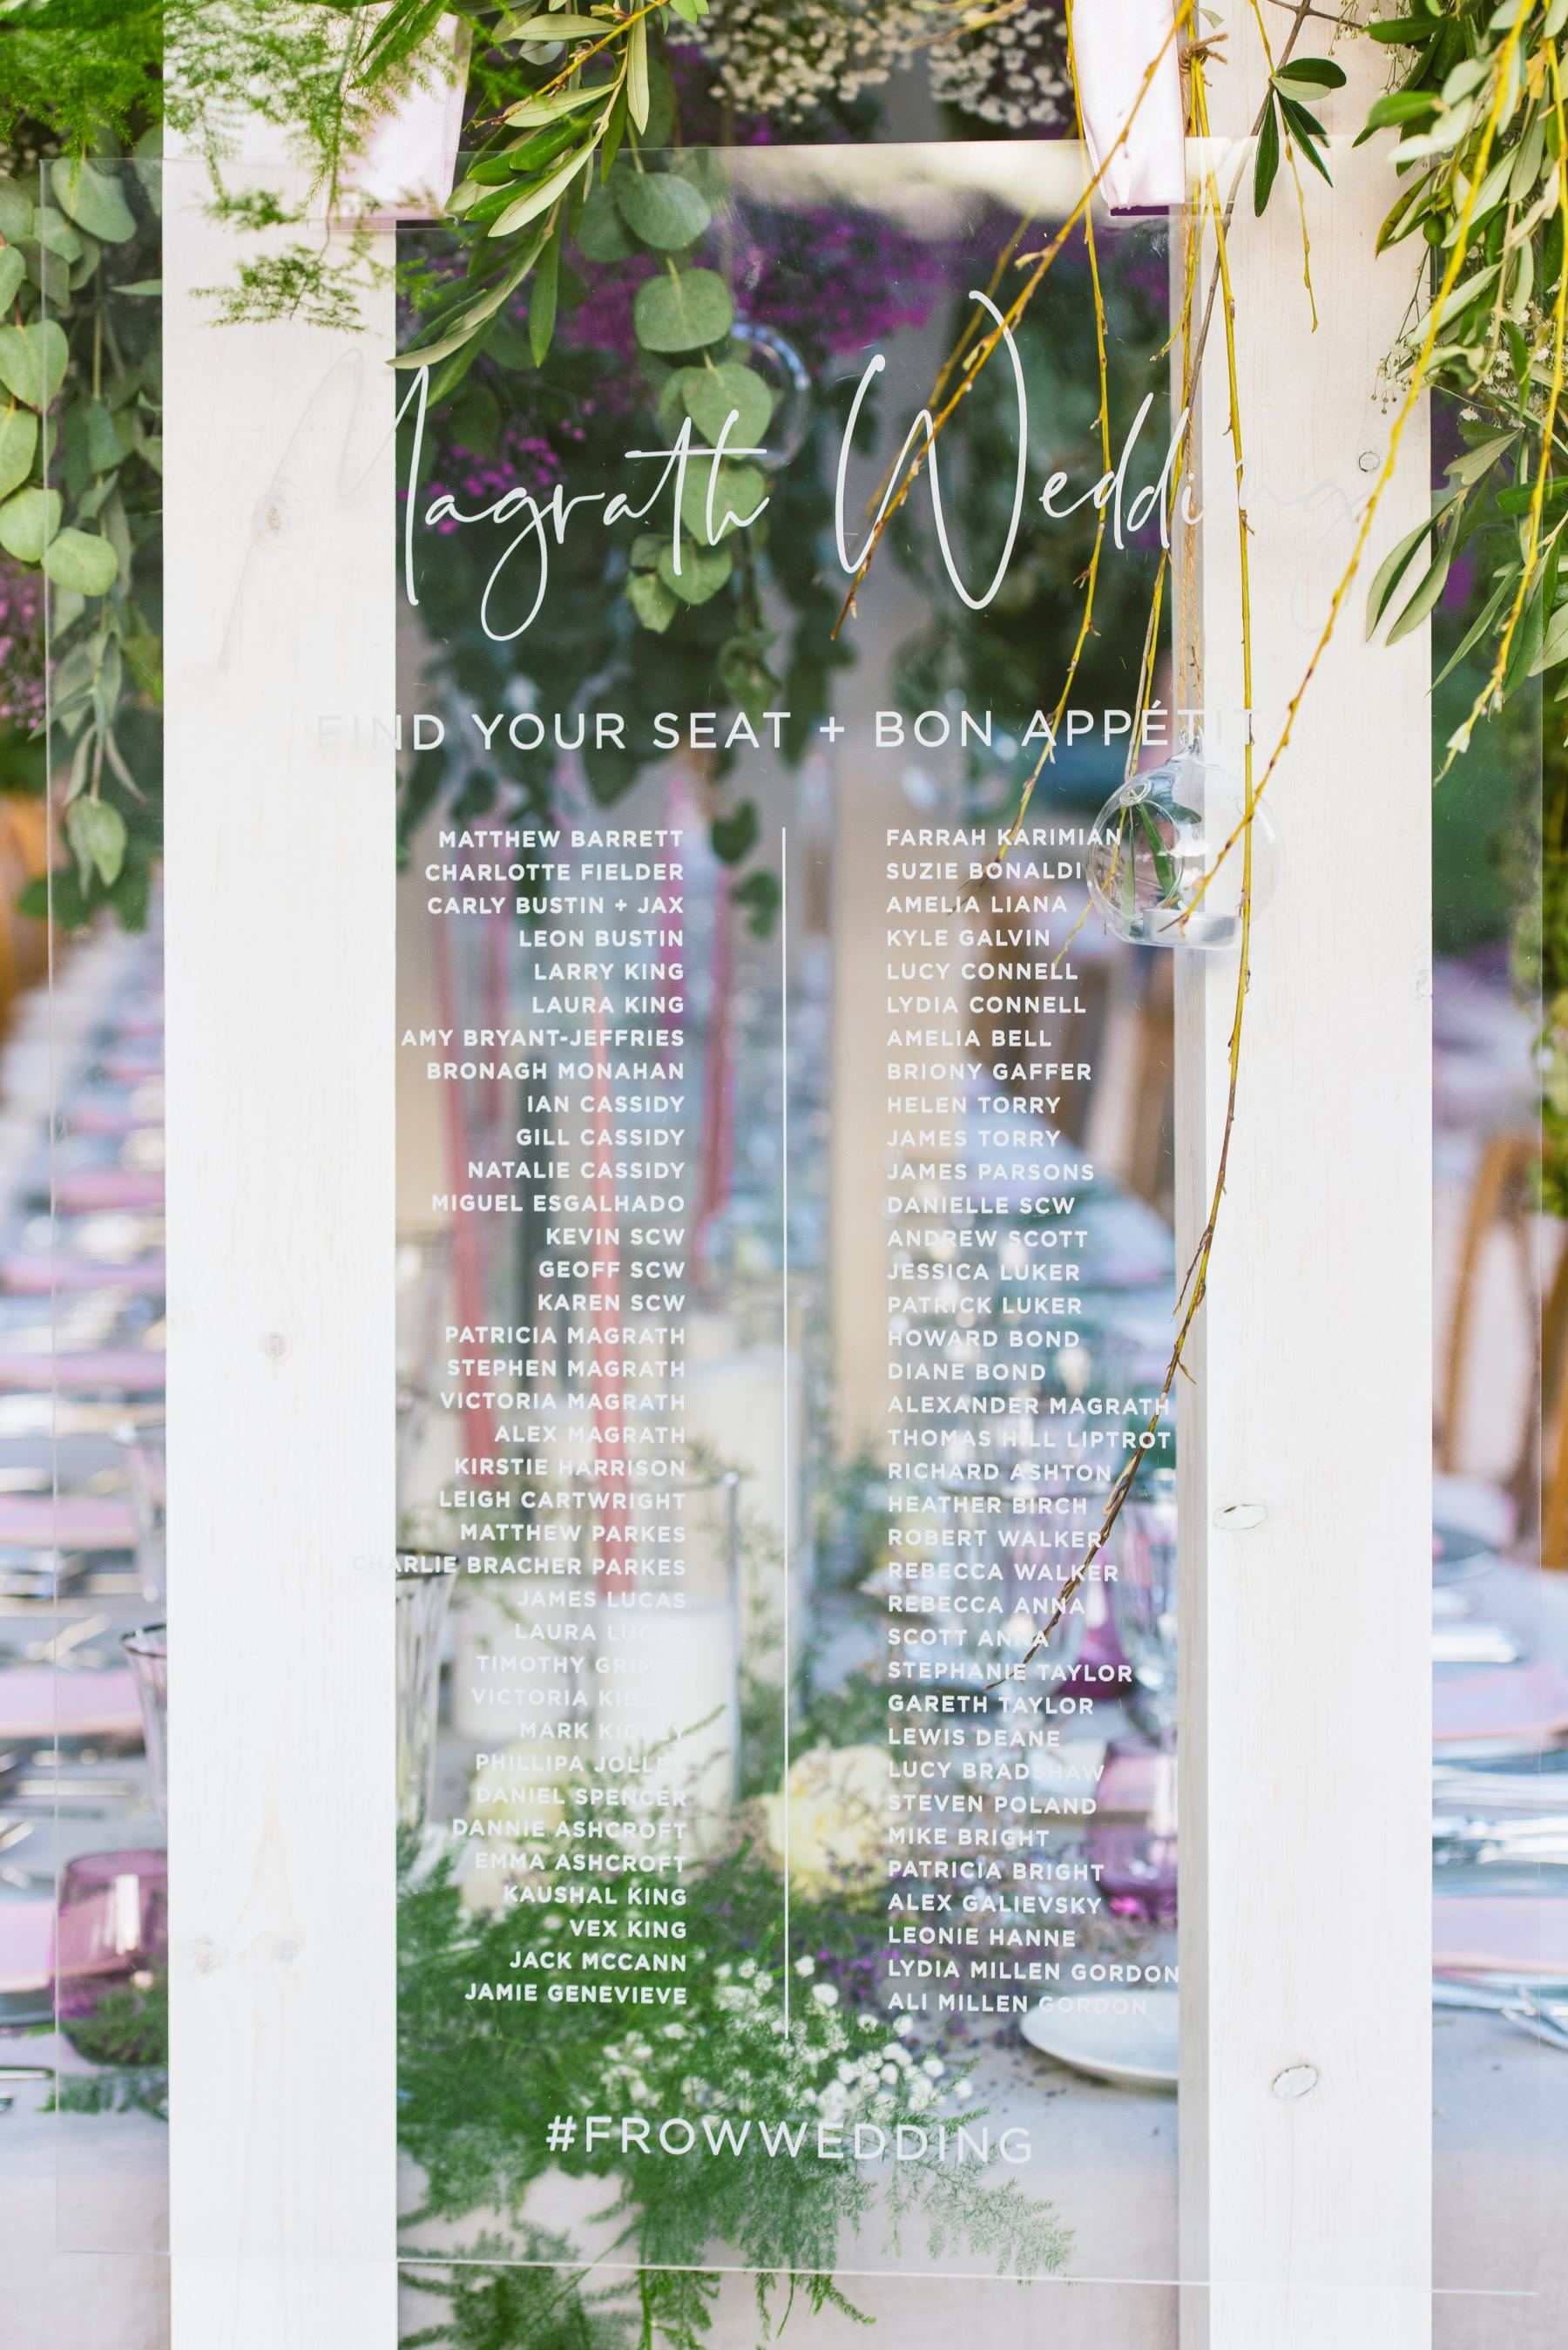 Magrath Wedding
FIND YOUR SEAT + BON APPÉTIT
MATTHEW BARRETT
CHARLOTTE FIELDER
CARLY BUSTIN + JAX
LEON BUSTIN
LARRY KING
LAURA KING
AMY BRYANT-JEFFRIES
BRONAGH MONAHAN
IAN CASSIDY
GILL CASSIDY
NATALIE CASSIDY
MIGUEL ESGALHADO
KEVIN SCW
GEOFF SCW
KAREN SCW
PATRICIA MAGRATH
STEPHEN MAGRATH
VICTORIA MAGRATH
ALEX MAGRATH
KIRSTIE HARRISON
LEIGH CARTWRIGHT
MATTHEW PARKES
CHARLIE BRACHER PARKES
JAMES LUCAS
LAURA
TIMOTHY
VICTORIA
MARK
PHILLIPA
DANIEL SPENCER
DANNIE ASHCROFT
EMMA ASHCROFT
KAUSHAL KING
VEX KING
JACK MCCANN
JAMIE GENEVIEVE
FARRAH KARIMIAN
SUZIE BONALDI
AMELIA LIANA
KYLE GALVIN
LUCY CONNELL
LYDIA CONNELL
AMELIA BELL
BRIONY GAFFER
HELEN TORRY
JAMES TORRY
JAMES PARSONS
DANIELLE SCW
ANDREW SCOTT
JESSICA LUKER
PATRICK LUKER
HOWARD BOND
DIANE BOND
ALEXANDER MAGRATH
THOMAS HILL LIPTROT
RICHARD ASHTON
HEATHER BIRCH
ROBERT WALKER
REBECCA WALKER
REBECCA ANNA
SCOTT ANNA
STEPHANIE TAYLOR
GARETH TAYLOR
LEWIS DEANE
LUCY BRADSHAW
STEVEN POLAND
MIKE BRIGHT
PATRICIA BRIGHT
ALEX GALIEVSKY
LEONIE HANNE
LYDIA MILLEN GORDON
ALI MILLEN GORDON
#FROWWEDDING